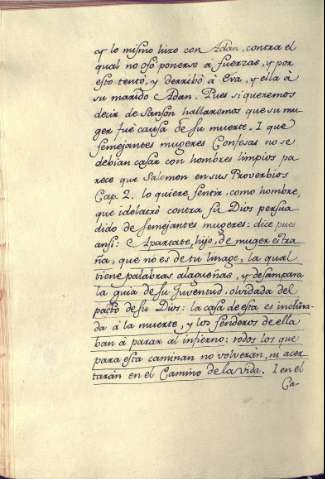 y lo mismo hizo con Adan, contra el
qual no osó ponerse a fuerzas, y por
esto tentó, y derribó â Eva, y ella â
su marido Adan. Pues si queremos
decir de Sanson hallaremos que su mu
ger fué causa de su muerte. I que
semejantes mugeres Confesas no se
debian casar con hombres limpios pa
rece que Salomon en sus Proverbios
Cap. 2. lo quiere sentir, como hombre,
que idolatró contra su Dios persua
dido de semejantes mugeres: dice pues
ansi: Apartate, hijo, de muger estra
ña, que no es de tu linage, la qual
tiene palabras alagueñas, y desampara
la guia de su Juventud, olvidada del
pacto de su Dios: la casa de esta es inclina
da â la muerte, y los senderos de ella
ban â parar al infierno: todos los que
para esta caminan no volverán, ni acer
tarán en el Camino de la vida. I en el
Ca-